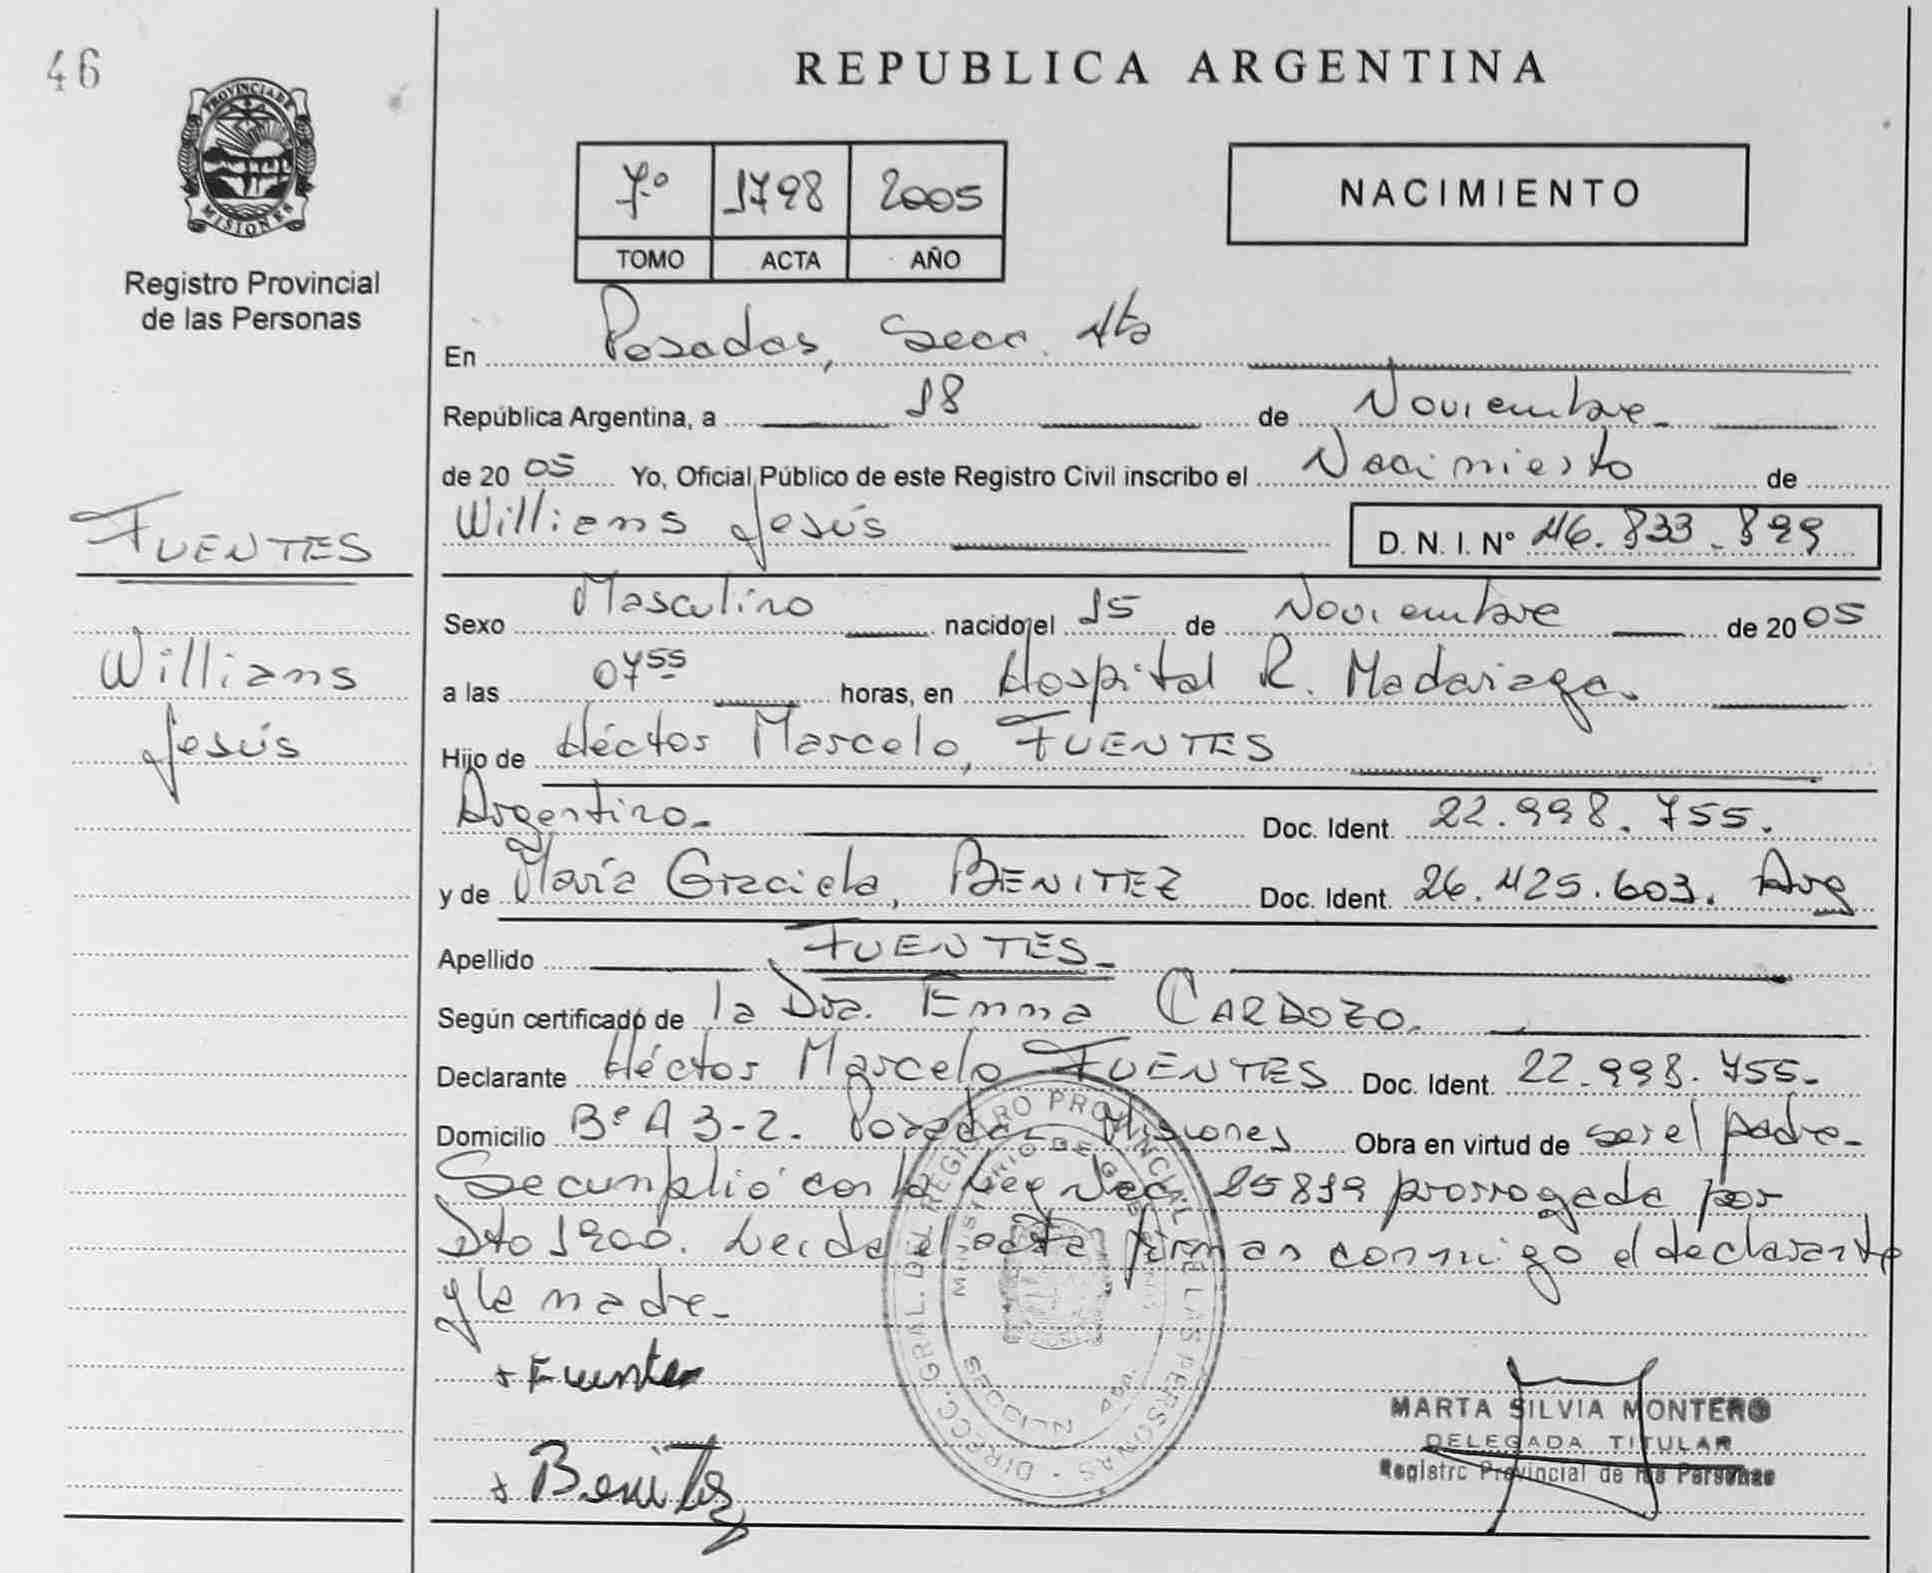 46
PROVINCIA DE
MISIONES
Registro Provincial
de las Personas
FUENTES
Willians
Jesús
REPUBLICA ARGENTINA
7º 1798 2005
TOMO ACTA AÑO
NACIMIENTO
En Posadas, Secc. 4ta
República Argentina, a 18 de Noviembre
de 2005 Yo, Oficial Público de este Registro Civil inscribo el Nacimiento de
Willians Jesús D. N. I. Nº 46.833.899
Sexo Masculino nacido el 15 de Noviembre de 2005
a las 07 55 horas, en Hospital R. Madariaga.
Hijo de Héctor Marcelo, FUENTES
Argentino. Doc. Ident. 22.998.755.
y de María Graciela, BENITEZ Doc. Ident. 26.425.603. Arg
Apellido FUENTES
Según certificado de la Dra. Emma CARDOZO.
Declarante Héctor Marcelo FUENTES Doc. Ident. 22.998.755.
Domicilio Bº A 3-2. Posadas Misiones Obra en virtud de ser el padre-
Se cumplió con la Ley Nac 25819 prorrogada por
Dto 1900. Leida el acta firman conmigo el declarante
y la madre-
+ Fuentes
+ Benitez
DIRECC. GRAL. DEL REGISTRO PROVINCIAL DE LAS PERSONAS
MINISTERIO DE
MARTA SILVIA MONTERO
DELEGADA TITULAR
Registro Provincial de las Personas